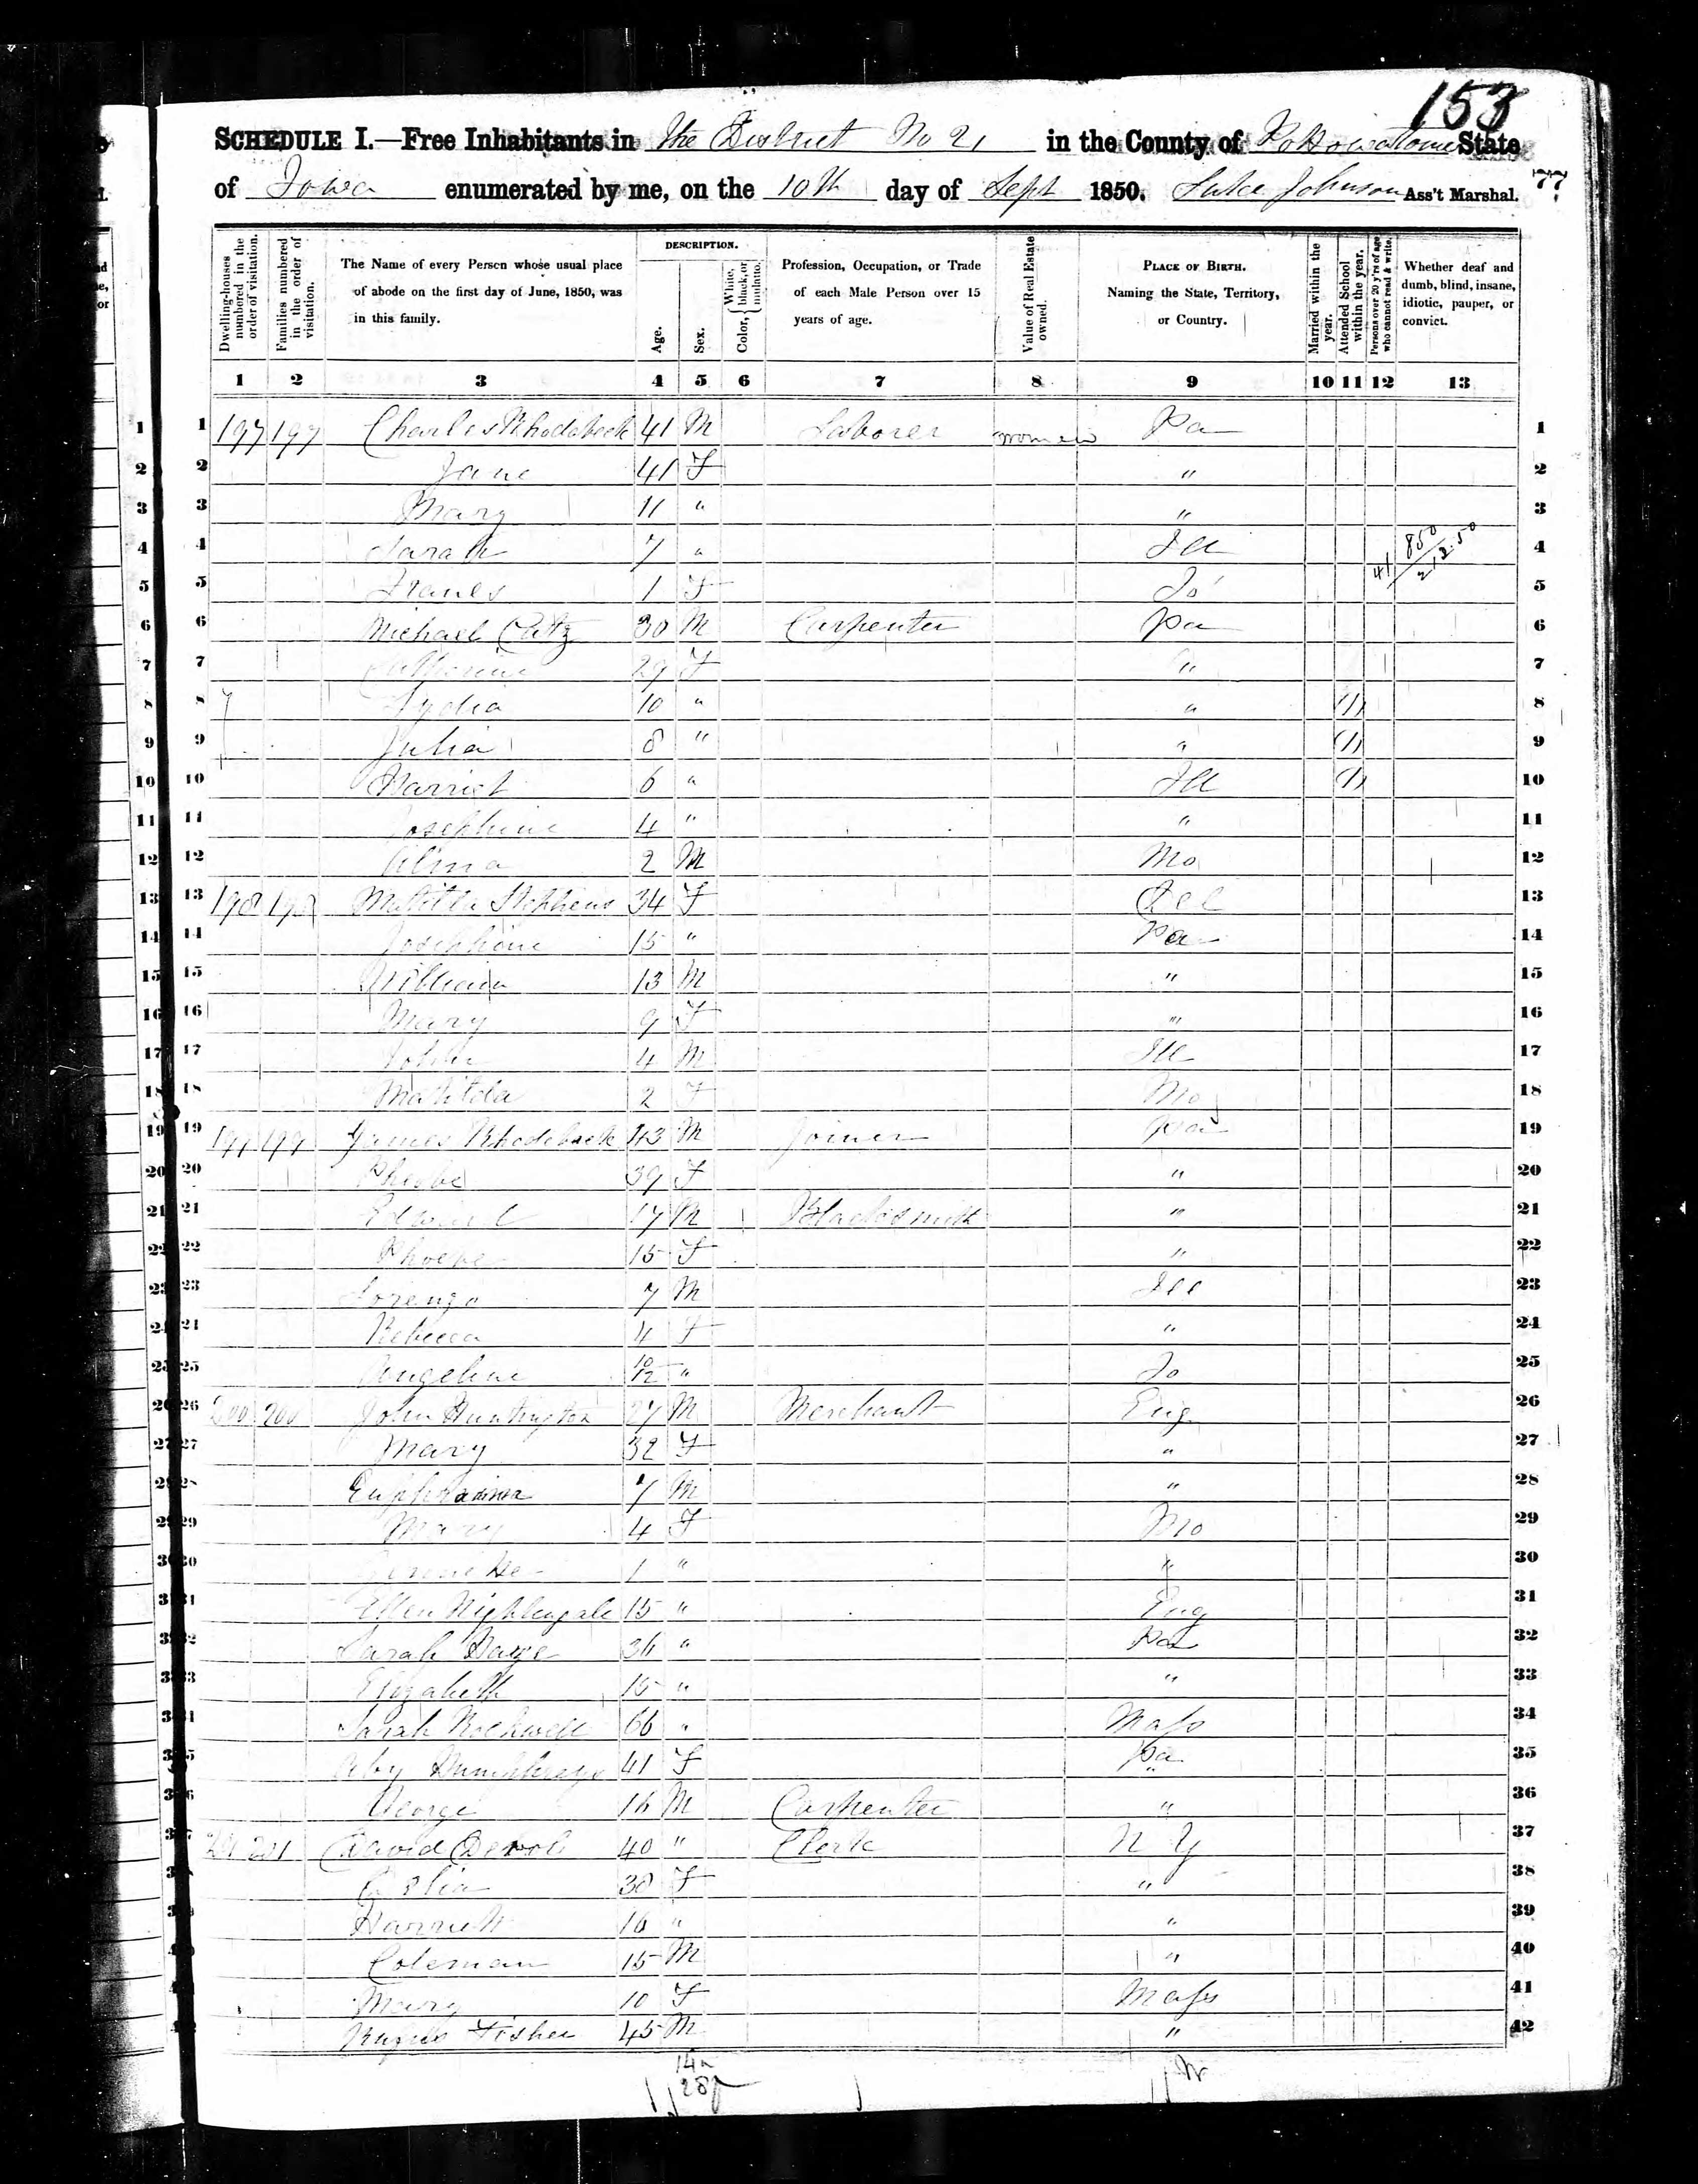 153
SCHEDULE I.—Free Inhabitants in The District No 21 in the County of Pottowatomie State
of Iowa enumerated by me, on the 10th day of Sept 1850. Luke Johnson Ass't Marshal. 77
Dwelling-houses numbered in the order of visitation.
Families numbered in the order of visitation.
The Name of every Person whose usual place of abode on the first day of June, 1850, was in this family.
DESCRIPTION.
Age.
Sex.
Color, { White, black, or mulatto.
Profession, Occupation, or Trade of each Male Person over 15 years of age.
Value of Real Estate owned.
PLACE OF BIRTH. Naming the State, Territory, or Country.
Married within the year.
Attended School within the year.
Persons over 20 y'rs of age who cannot read & write.
Whether deaf and dumb, blind, insane, idiotic, pauper, or convict.
1 2 3 4 5 6 7 8 9 10 11 12 13
1 197 197 Charles Rhodabeck 41 M Laborer Pa 1
2 Jane 41 F " 2
3 Mary 11 " " 3
4 Sarah 7 " Ill 41 850 212.50 4
5 Frances 1 F Io 5
6 Michael Catz 30 M Carpenter Pa 6
7 Catherine 29 F " 7
8 Lydia 10 " " 1 8
9 Julia 8 " " 1 9
10 Harriet 6 " Ill 1 10
11 Josephine 4 " " 11
12 Alma 2 M Mo 12
13 198 198 Matilda Stephens 34 F Del 13
14 Josephine 15 " Pa 14
15 William 13 M " 15
16 Mary 9 F " 16
17 John 4 M Ill 17
18 Matilda 2 F Mo 18
19 199 199 James Rhodeback 43 M Joiner Pa 19
20 Pheobe 39 F " 20
21 Edward 17 M Blacksmith " 21
22 Phoebe 15 F " 22
23 Lorenzo 7 M Ill 23
24 Rebecca 4 F " 24
25 Angeline 10/12 " Io 25
26 200 200 John Huntington 27 M Merchant Eng 26
27 Mary 32 F " 27
28 7 M " 28
29 Mary 4 F Mo 29
30 1 " " 30
31 Ellen Nightengale 15 " Eng 31
32 Sarah 36 " Pa 32
33 Elizabeth 15 " " 33
34 Sarah Rockwell 66 " Mass 34
35 Aby Humphreys 41 F Pa 35
36 George 16 M Carpenter " 36
37 201 201 David 40 " Clerk N Y 37
38 Celia 38 F " 38
39 Harriett 16 " " 39
40 Coleman 15 M " 40
41 Mary 10 F Mass 41
42 Rufus Fisher 45 M " 42
14m
28f